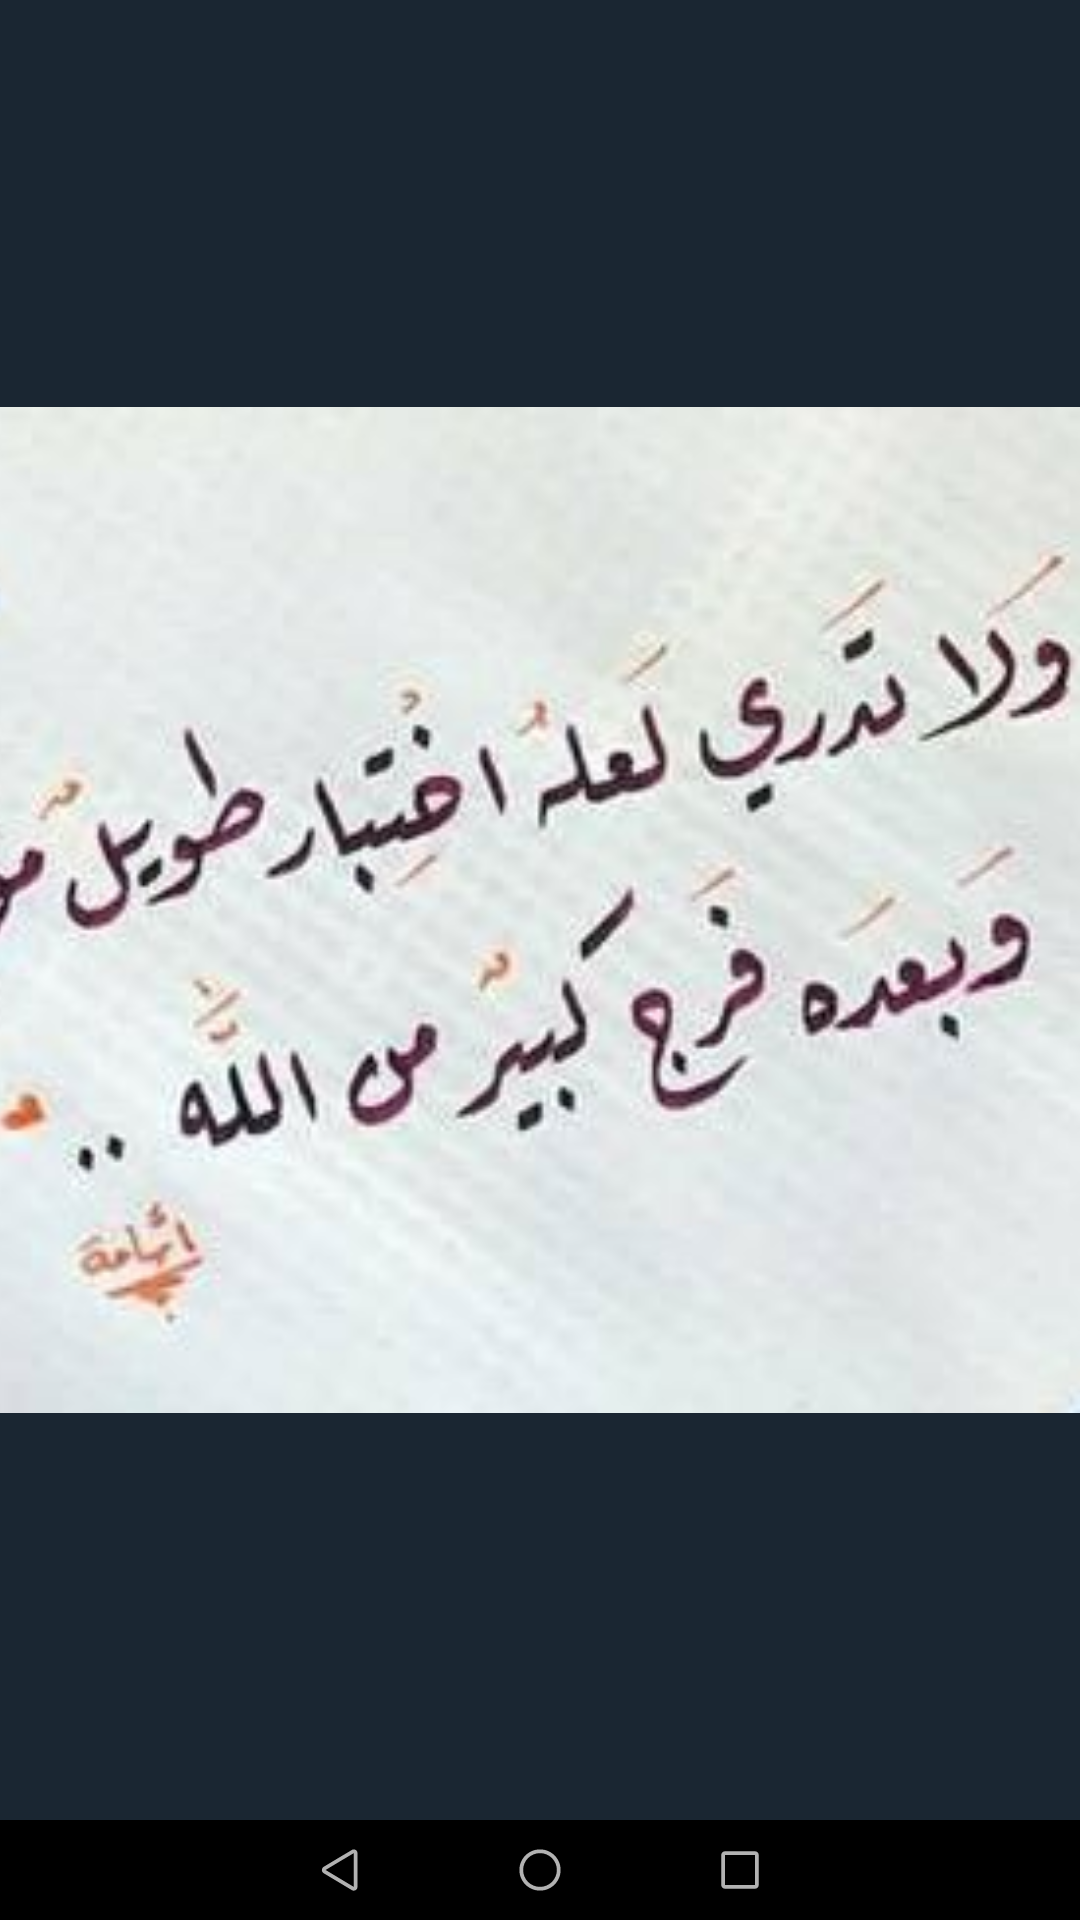 وَلَا تَدَري لَعَلهُ اخْتِبار طويلٌ
وَبعَده فَرَج كبيرٌ من اللَّه ..